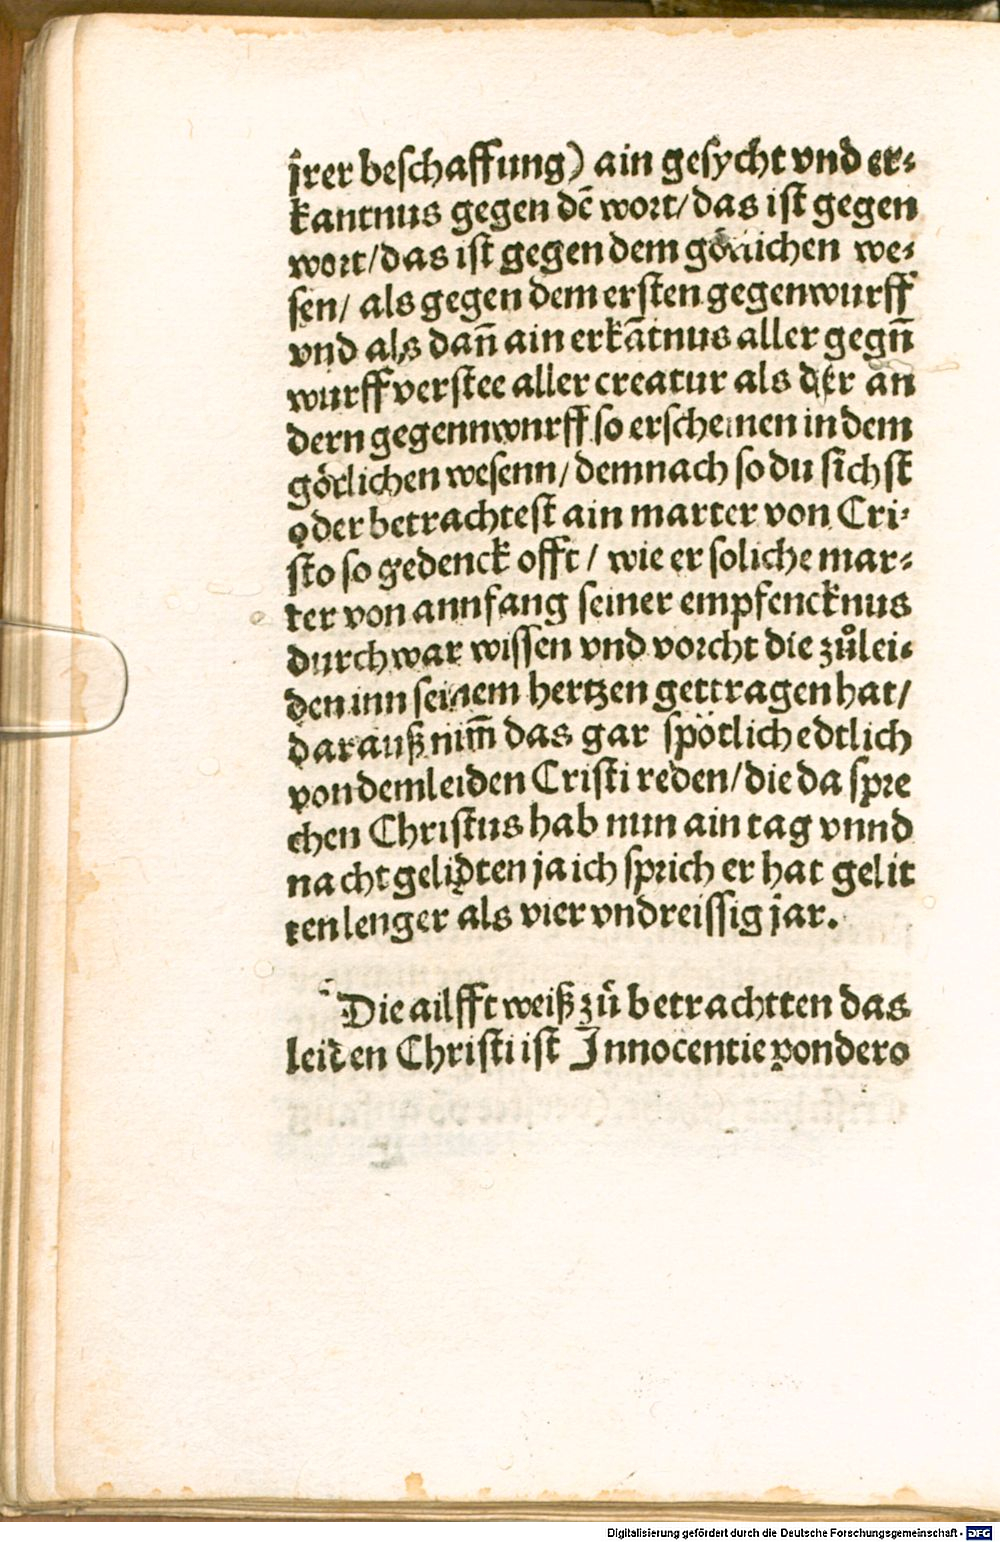 jrer beschaffung) ain gesycht vnd er⸗
kantnus gegen dē wort/das ist gegen
wort/das ist gegen dem götlichen we⸗
sen/ als gegen dem ersten gegenwurff
vnd als dañ ain erkātnus aller gegñ
wurff verstee aller creatur als der an
dern gegennwnrff so erscheinen in dem
götlichen wesenn/demnach so du sichst
oder betrachtest ain marter von Cri⸗
sto so gedenck offt/ wie er soliche mar⸗
ter von annfang seiner empfencknus
durch war wissen vnd vorcht die zůlei⸗
den inn seinem hertzen gettragen hat/
darauß nim̄ das gar spötlich edtlich
von dem leiden Cristi reden/die da spre
chen Christus hab nun ain tag vnnd
nacht gelidten ja ich sprich er hat gelit
ten lenger als vier vndreissig jar.
Die ailfft weiß zů betrachtten das
leiden Christi ist Innocentie pondero
Digitalisierung gefördert durch die Deutsche Forschungsgemeinschaft - DFG